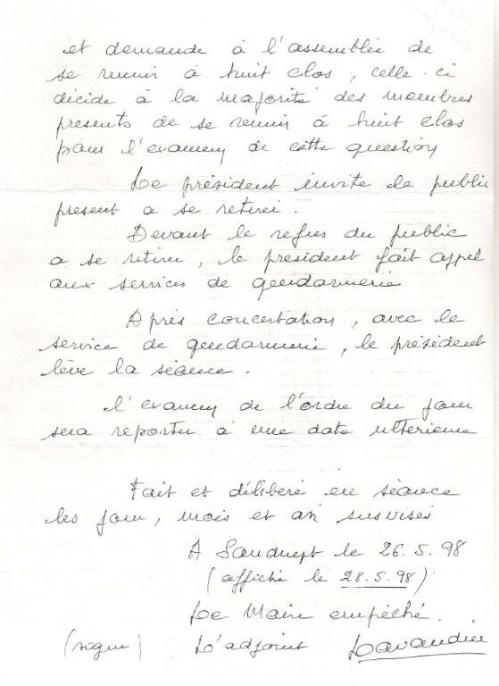 et demande à l'assemblée de
se reunir à huit clos, celle-ci
décide à la majorité des membres
presents de se reunir à huit clos
pour l'examen de cette question
Le président invite le public
present a se retirer.
Devant le refus du public
a se retirer, le president fait appel
aux services de gendarmerie
Après concertation, avec le
service de gendarmerie, le président
lève la séance.
L'examen de l'ordre du jour
sera reporter à une date ulterieure
Fait et délibéré en séance
les jour, mois et an susvisés
A le 26.5.98
(affiché le 28.5.98)
Le Maire empêché.
(signé) L'adjoint Lavandier